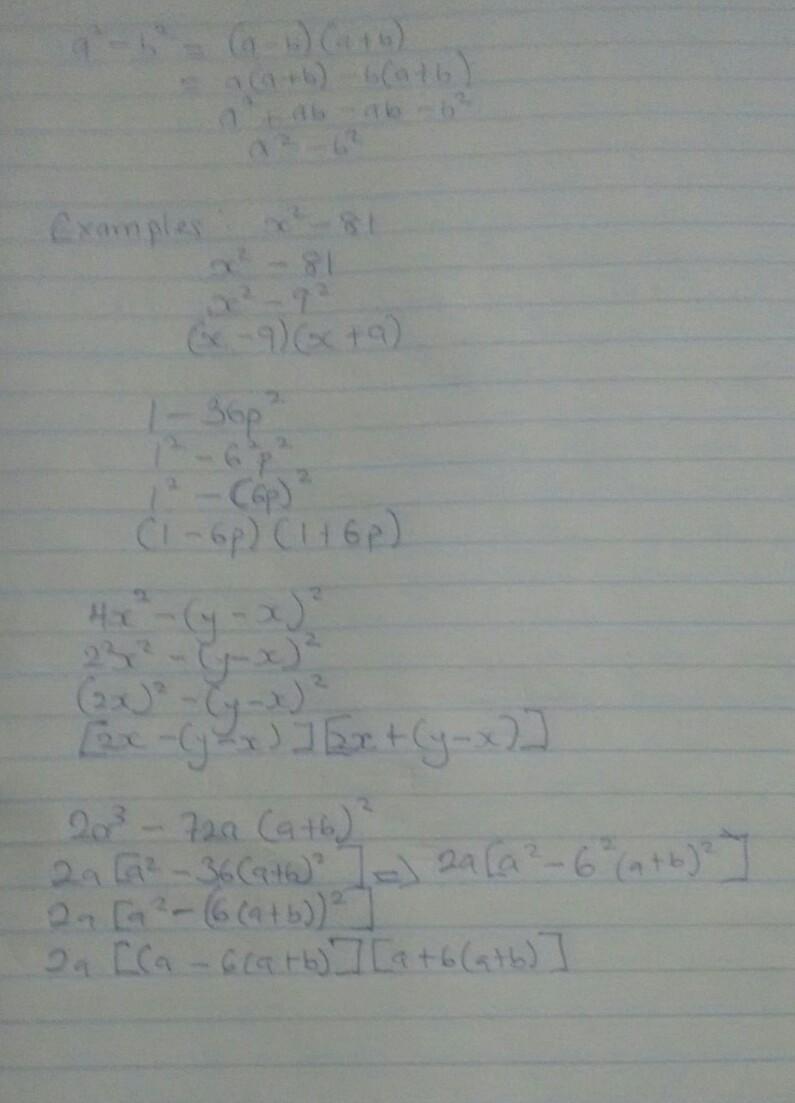 a² - b² = (a - b)(a + b)
= a(a + b) - b(a + b)
a² + ab - ab - b²
a² - b²
Examples: x² - 81
x² - 81
x² - 9²
(x - 9)(x + 9)
1 - 36p²
1² - 6²p²
1² - (6p)²
(1 - 6p)(1 + 6p)
4x² - (y - x)²
2²x² - (y - x)²
(2x)² - (y - x)²
[2x - (y - x)][2x + (y - x)]
2a³ - 72a (a + b)²
2a [a² - 36(a + b)²] => 2a[a² - 6²(a + b)²]
2a [a² - (6(a + b))²]
2a [(a - 6(a + b)][a + 6(a + b)]